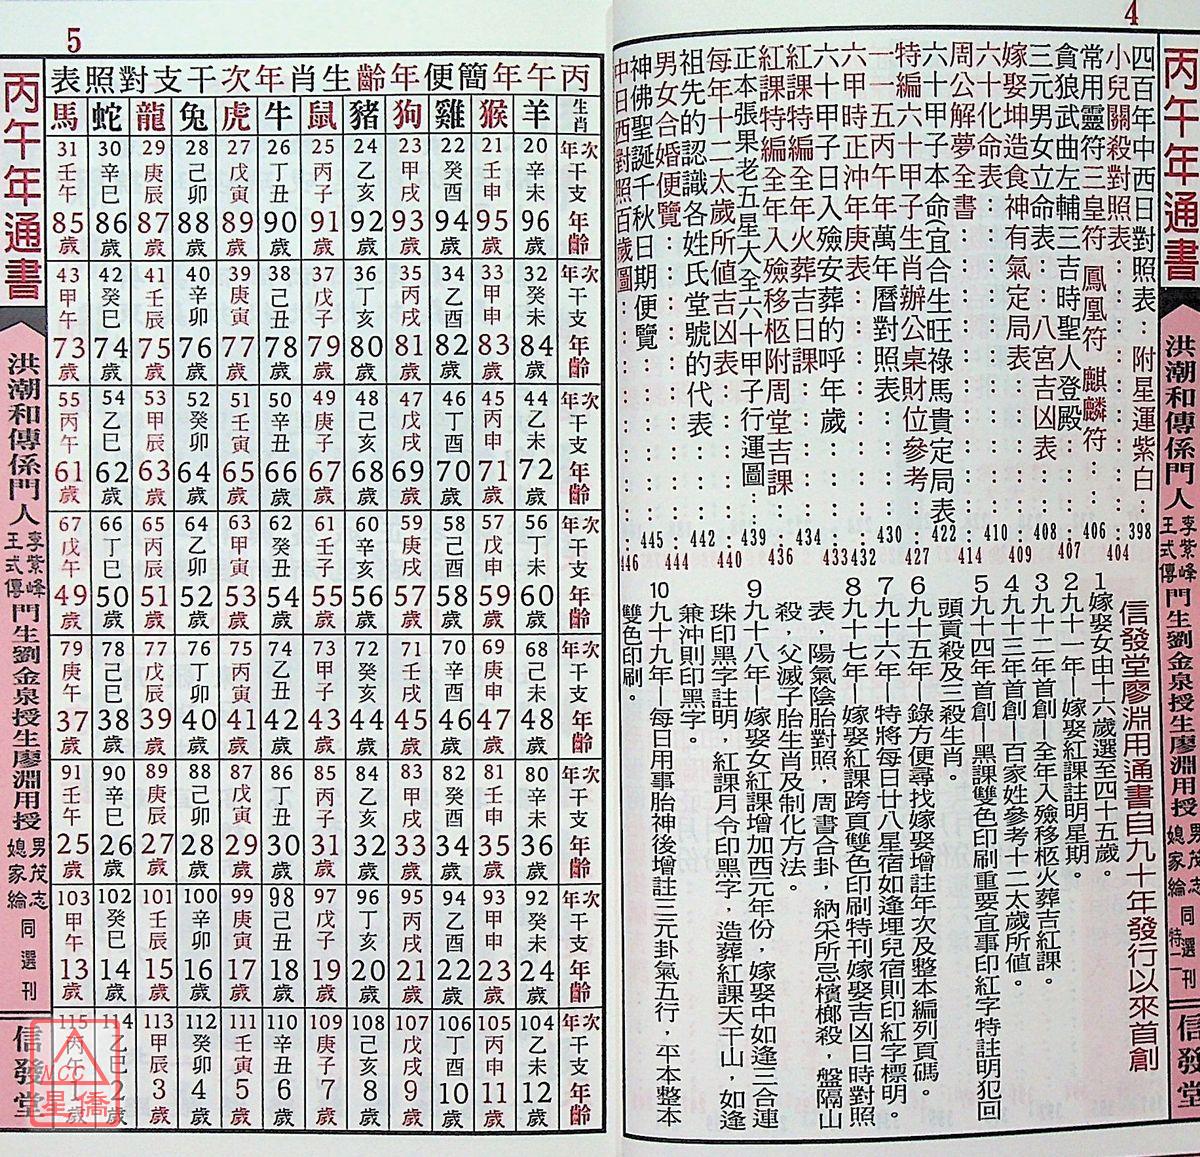 4
丙午年通書
洪潮和傳係門人李紫峰王式傳門生劉金泉授生廖淵用授男茂志媳家綸同選刊
特二
信發堂
四百年中西日對照表：附星運紫白：398
小兒關殺對照表：：：：：：404
常用靈符三皇符 鳳凰符 麒麟符：：406
貪狼武曲左輔三吉時聖人登殿：：407
三元男女立命表：：八宮吉凶表：：408
嫁娶坤造食神有氣定局表：：：409
六十化命表：：：：：：410
周公解夢全書：：：：：：414
六十甲子本命宜合生旺祿馬貴定局表：422
特編六十甲子生肖辦公桌財位參考：427
一一五丙午年萬年曆對照表：：：430
六甲時正沖年庚表：：：：：432
六十甲子日入殮安葬的呼年歲：：433
紅課特編全年火葬吉日課：：：434
紅課特編全年入殮移柩附周堂吉課：436
正本張果老五星大全六十甲子行運圖：439
每年十二太歲所值吉凶表：：：440
祖先的認識各姓氏堂號的代表：：442
男女合婚便覽：：：：：：444
神佛聖誕千秋日期便覽：：：：445
中日西對照百歲圖：：：：：446
信發堂廖淵用通書自九十年發行以來首創
1嫁娶女由十六歲選至四十五歲。
2九十一年—嫁娶紅課註明星期。
3九十二年首創—全年入殮移柩火葬吉紅課。
4九十三年首創—百家姓參考十二太歲所值。
5九十四年首創—黑課雙色印刷重要宜事印紅字特註明犯回
頭貢殺及三殺生肖。
6九十五年—錄方便尋找嫁娶增註年次及整本編列頁碼。
7九十六年—特將每日廿八星宿如逢埋兒宿則印紅字標明。
8九十七年—嫁娶紅課跨頁雙色印刷特刊嫁娶吉凶日時對照
表，陽氣陰胎對照，周書合卦，納采所忌檳榔殺，盤隔山
殺，父滅子胎生肖及制化方法。
9九十八年—嫁娶女紅課增加西元年份，嫁娶中如逢三合連
珠印黑字註明，紅課月令印黑字，造葬紅課天干山，如逢
兼沖則印黑字。
10九十九年—每日用事胎神後增註三元卦氣五行，平本整本
雙色印刷。
5
丙午年簡便年齡生肖年次干支對照表
生肖 羊 猴 雞 狗 豬 鼠 牛 虎 兔 龍 蛇 馬
年次 20 21 22 23 24 25 26 27 28 29 30 31
干支 辛未 壬申 癸酉 甲戌 乙亥 丙子 丁丑 戊寅 己卯 庚辰 辛巳 壬午
年齡 96歲 95歲 94歲 93歲 92歲 91歲 90歲 89歲 88歲 87歲 86歲 85歲
年次 32 33 34 35 36 37 38 39 40 41 42 43
干支 癸未 甲申 乙酉 丙戌 丁亥 戊子 己丑 庚寅 辛卯 壬辰 癸巳 甲午
年齡 84歲 83歲 82歲 81歲 80歲 79歲 78歲 77歲 76歲 75歲 74歲 73歲
年次 44 45 46 47 48 49 50 51 52 53 54 55
干支 乙未 丙申 丁酉 戊戌 己亥 庚子 辛丑 壬寅 癸卯 甲辰 乙巳 丙午
年齡 72歲 71歲 70歲 69歲 68歲 67歲 66歲 65歲 64歲 63歲 62歲 61歲
年次 56 57 58 59 60 61 62 63 64 65 66 67
干支 丁未 戊申 己酉 庚戌 辛亥 壬子 癸丑 甲寅 乙卯 丙辰 丁巳 戊午
年齡 60歲 59歲 58歲 57歲 56歲 55歲 54歲 53歲 52歲 51歲 50歲 49歲
年次 68 69 70 71 72 73 74 75 76 77 78 79
干支 己未 庚申 辛酉 壬戌 癸亥 甲子 乙丑 丙寅 丁卯 戊辰 己巳 庚午
年齡 48歲 47歲 46歲 45歲 44歲 43歲 42歲 41歲 40歲 39歲 38歲 37歲
年次 80 81 82 83 84 85 86 87 88 89 90 91
干支 辛未 壬申 癸酉 甲戌 乙亥 丙子 丁丑 戊寅 己卯 庚辰 辛巳 壬午
年齡 36歲 35歲 34歲 33歲 32歲 31歲 30歲 29歲 28歲 27歲 26歲 25歲
年次 92 93 94 95 96 97 98 99 100 101 102 103
干支 癸未 甲申 乙酉 丙戌 丁亥 戊子 己丑 庚寅 辛卯 壬辰 癸巳 甲午
年齡 24歲 23歲 22歲 21歲 20歲 19歲 18歲 17歲 16歲 15歲 14歲 13歲
年次 104 105 106 107 108 109 110 111 112 113 114 115
干支 乙未 丙申 丁酉 戊戌 己亥 庚子 辛丑 壬寅 癸卯 甲辰 乙巳 丙午
年齡 12歲 11歲 10歲 9歲 8歲 7歲 6歲 5歲 4歲 3歲 2歲 1歲
丙午年通書
洪潮和傳係門人李紫峰王式傳門生劉金泉授生廖淵用授男茂志媳家綸同選刊
信發堂
NCC
星僑